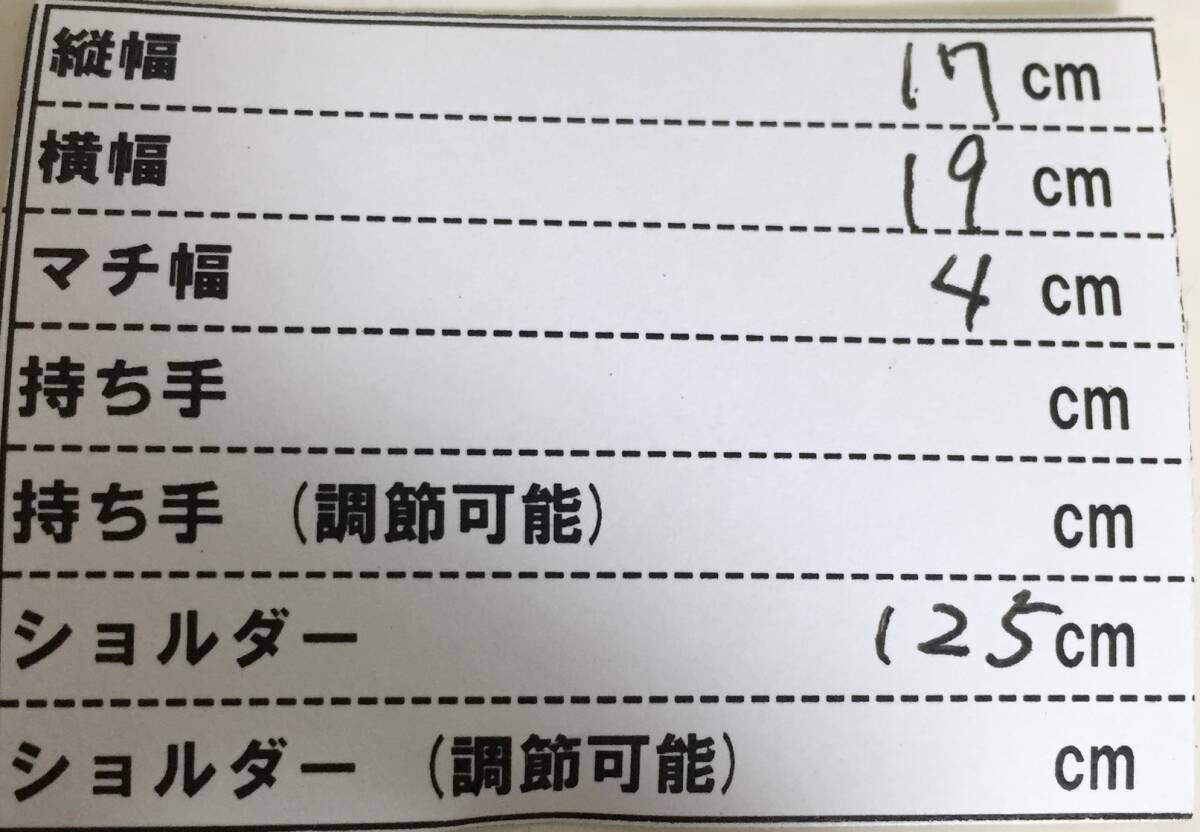 縦幅 17 cm
横幅 19 cm
マチ幅 4 cm
持ち手 cm
持ち手 (調節可能) cm
ショルダー 125cm
ショルダー (調節可能) cm